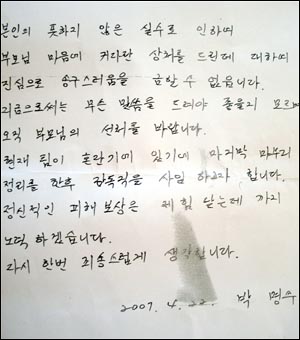 본인의 뜻하지 않은 실수로 인하여
부모님 마음에 커다란 상처를 드린데 대하여
진심으로 송구스러움을 금할수 없읍니다.
지금으로써는 무슨 말씀을 드려야 좋을지 모르며
오직 부모님의 선처를 바랍니다.
현재 팀이 혼란기에 있기에 마지막 마무리
정리를 한후 감독직을 사임 하고자 합니다.
정신적인 피해 보상은 제 힘 닫는데 까지
노력 하겠습니다.
다시 한번 죄송스럽게 생각합니다.
2007. 4. 22. 박 명수